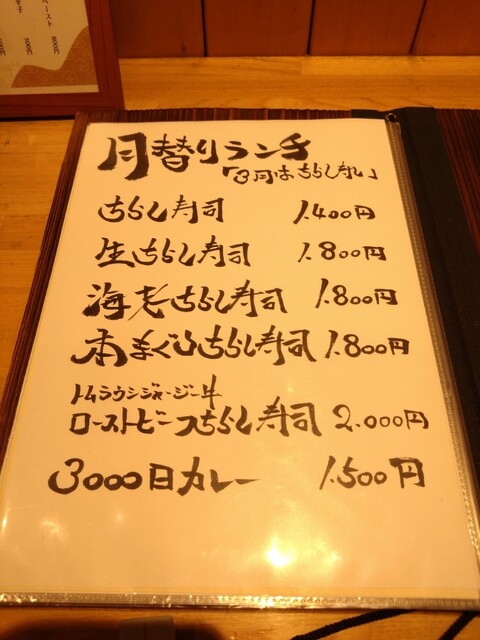 ペースト 800円
辛子 500円
月替りランチ
「3月はちらし寿し」
ちらし寿司 1.400円
生ちらし寿司 1.800円
海老ちらし寿司 1.800円
本まぐろちらし寿司 1.800円
トムラウシジャージー牛
ローストビーフちらし寿司 2.000円
3000日カレー 1.500円